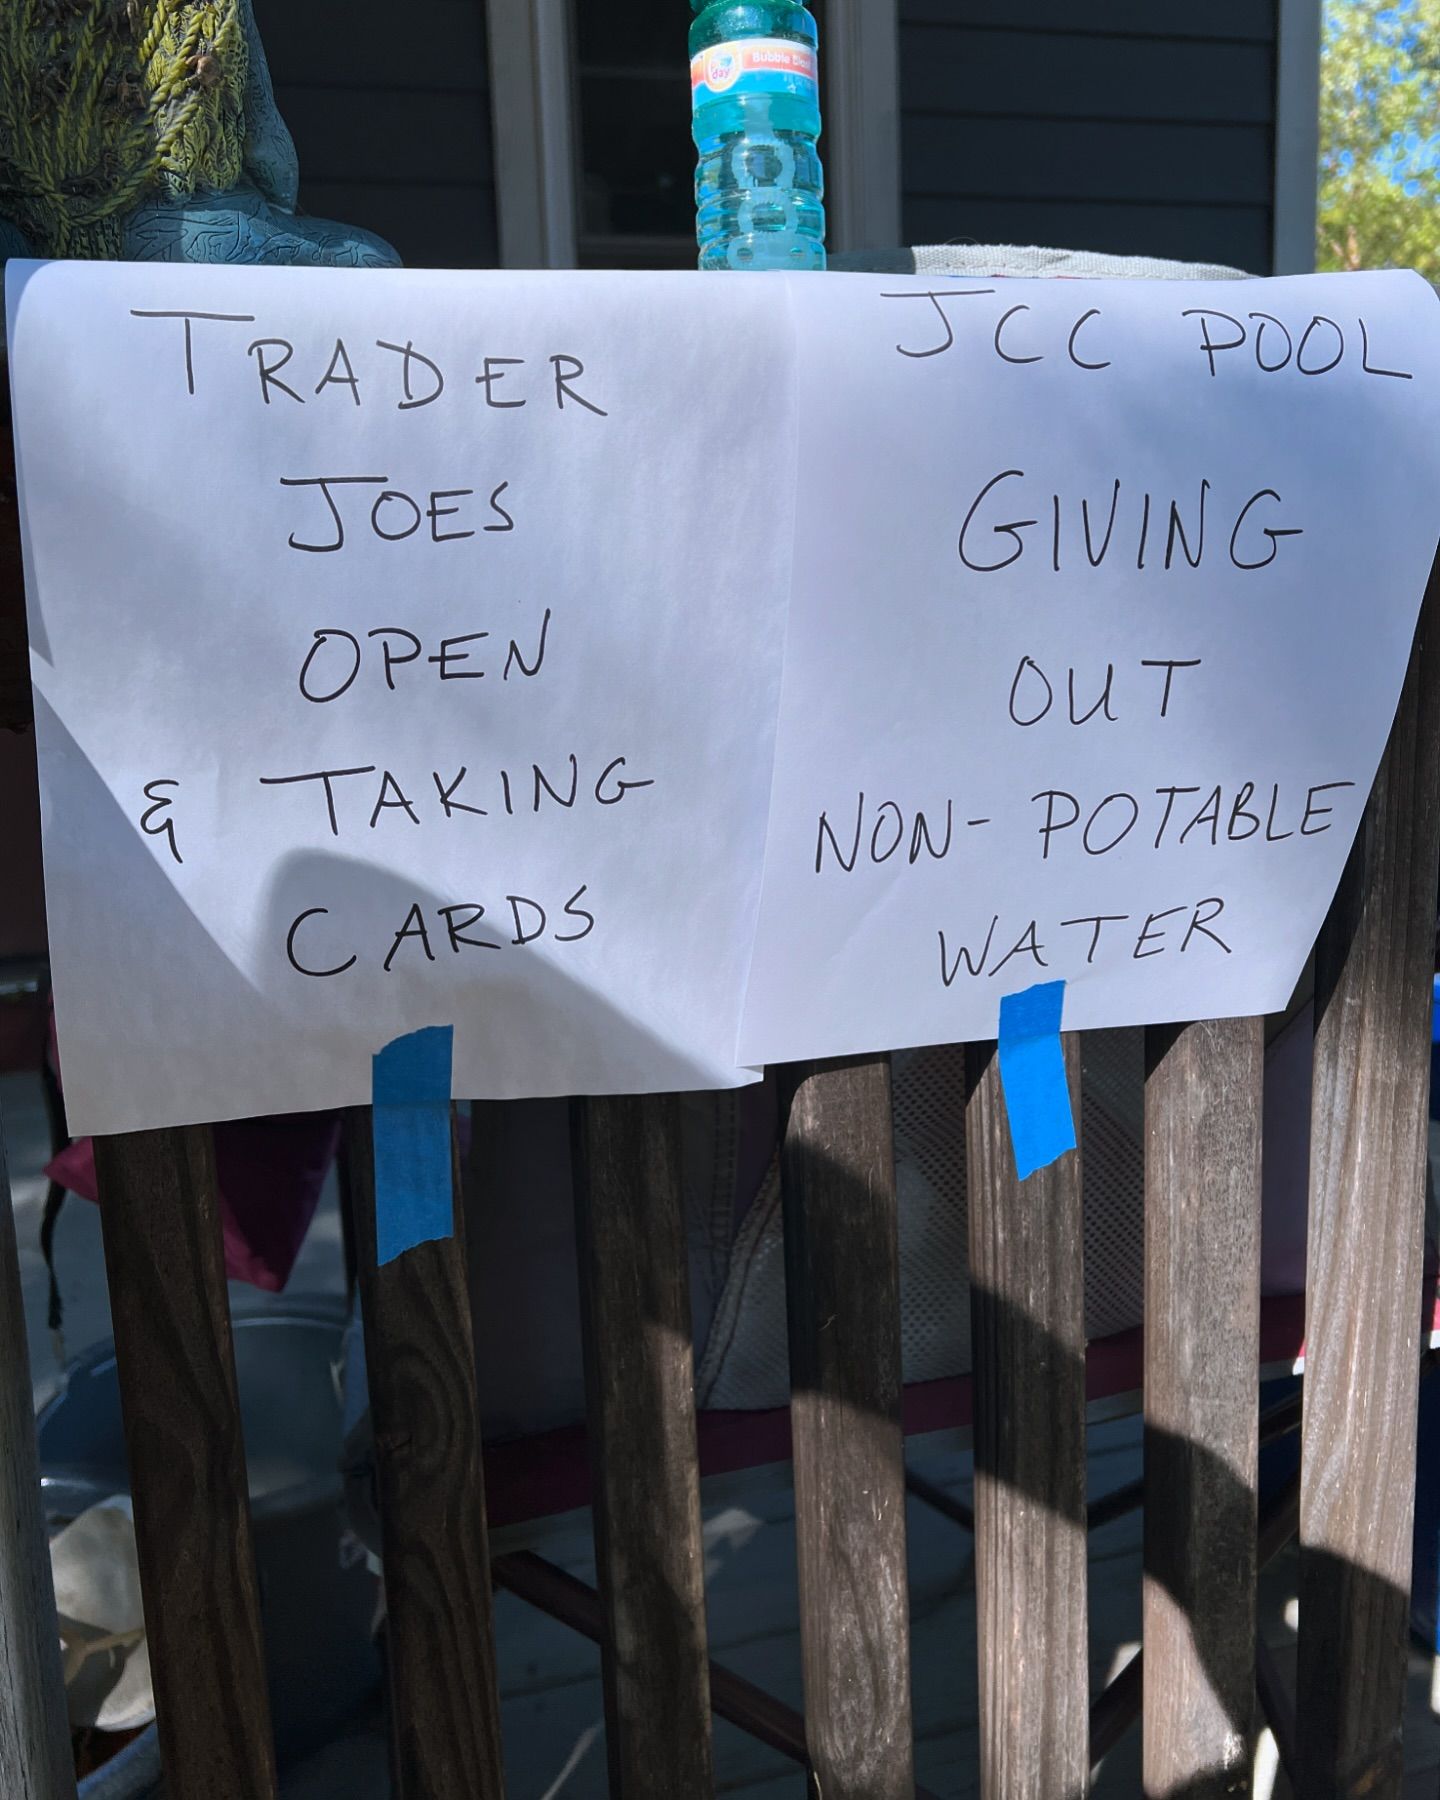 Bubble Blast
TRADER
JOES
OPEN
& TAKING
CARDS
JCC POOL
GIVING
OUT
NON-POTABLE
WATER